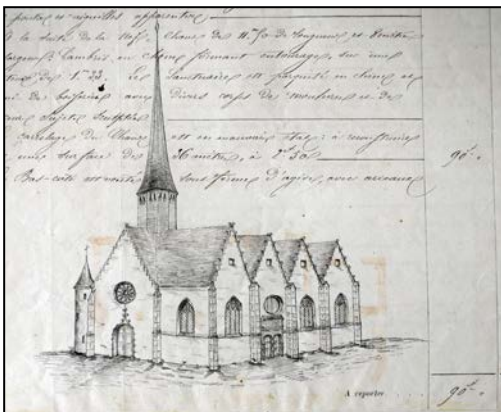 portes et aiguilles apparentes
à la suite de la Nef, Chœur de 11.70 de longueur et 6 mètres
largeur. Lambris en chêne formant entourage, sur une
hauteur de 1.m 23. Le Sanctuaire est parqueté en chêne et
de boiseries avec divers corps de moulures et de
sujets sculptés
carrelage du Chœur est en mauvais état : à reconstruire
une surface de 36 mètres, à 2f 50 90 f. "
Bas-coté voûté sous forme d'ogive, avec arceaux
A reporter . . . . 90 f. "